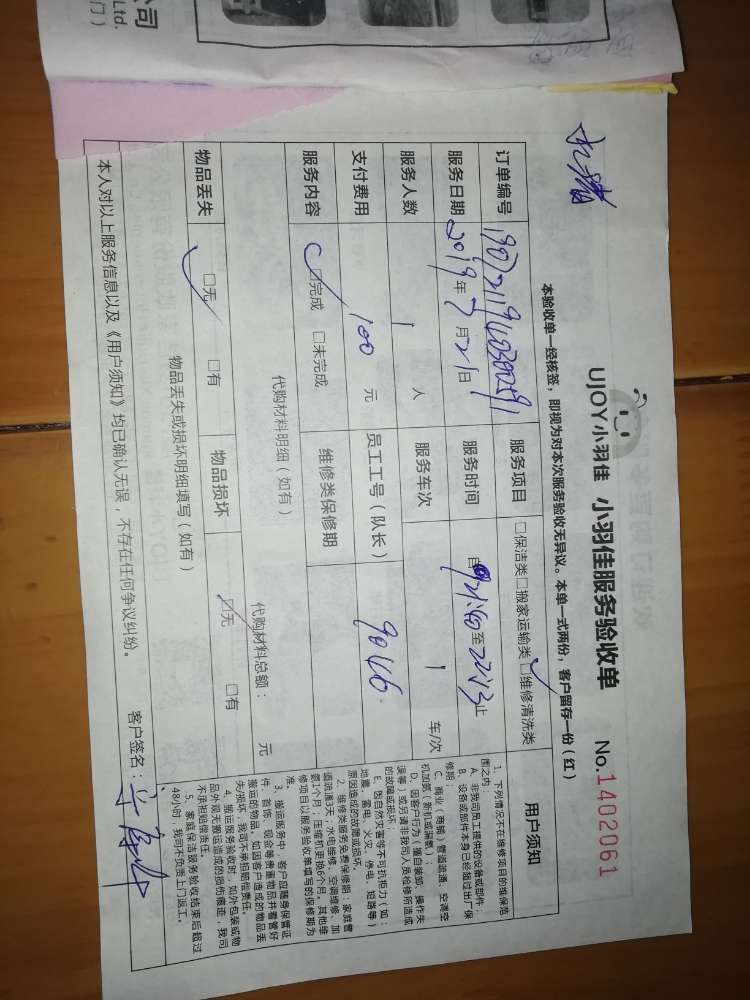 UJOY小羽佳 小羽佳服务验收单 No.1402061
本验收单一经核签，即视为对本次服务验收无异议。本单一式两份，客户留存一份（红）
订单编号 服务项目 □保洁类□搬家运输类□维修清洗类
服务日期 2019年7月21日 服务时间 至22:13止
服务人数 1 人 服务车次 1 车/次
支付费用 100 元 员工工号（队长）
服务内容 □完成 □未完成 维修类保修期
代购材料明细（如有） 代购材料总额： 元
物品丢失 □无 □有 物品损坏 □无 □有
物品丢失或损坏明细填写（如有）
本人对以上服务信息以及《用户须知》均已确认无误，不存在任何争议纠纷。 客户签名：
用户须知
1、下列情况不在维修项目的维保范
围之内：
A、非我司员工提供的设备或部件；
B、设备或部件本身已经超过出厂保
修期；
C、商业（商铺）管道疏通、空调空
机加氨（新机或漏氨）；
D、因客户行为（擅自装卸、操作失
误等）或另请非我司人员检修所造成
的故障或损坏；
E、因自然灾害等不可抗拒力（如：
地震、雷电、火灾、停电、短路等）
原因造成的故障或损坏。
2、维修类服务免费保修期：家庭管
道疏通3天；水电维修、空调维修、加
氨1个月；压缩机更换6个月。其他维
修项目以服务验收单填写的保修期为
准。
3、搬运服务中，客户应随身保管证
件、首饰、现金等贵重物品并看管好
搬运的物品，如因客户造成的物品丢
失/损坏，我司不承担赔偿责任。
4、搬运服务验收时，如外包装或物
品外观无搬运造成的损伤痕迹，我司
不承担赔偿责任。
5、家庭保洁服务验收结束后超过
48小时，我司不负责上门返工。
公司
Ltd.
门）